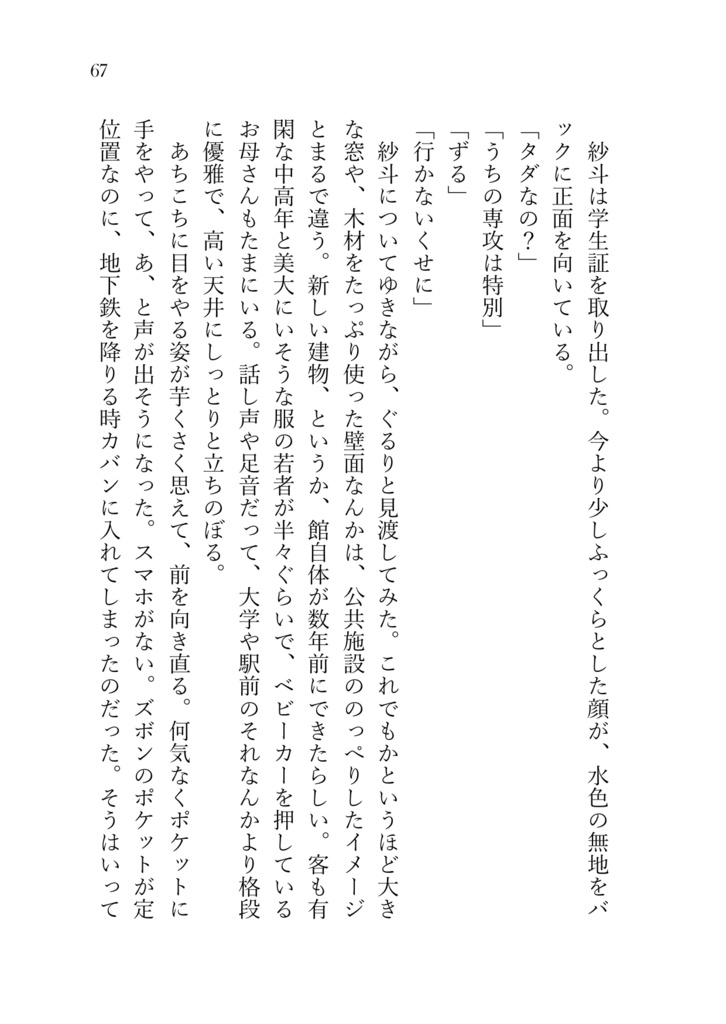 67
紗斗は学生証を取り出した。今より少しふっくらとした顔が、水色の無地をバ
ックに正面を向いている。
「タダなの？」
「うちの専攻は特別」
「ずる」
「行かないくせに」
紗斗についてゆきながら、ぐるりと見渡してみた。これでもかというほど大き
な窓や、木材をたっぷり使った壁面なんかは、公共施設ののっぺりしたイメージ
とまるで違う。新しい建物、というか、館自体が数年前にできたらしい。客も有
閑な中高年と美大にいそうな服の若者が半々ぐらいで、ベビーカーを押している
お母さんもたまにいる。話し声や足音だって、大学や駅前のそれなんかより格段
に優雅で、高い天井にしっとりと立ちのぼる。
あちこちに目をやる姿が芋くさく思えて、前を向き直る。何気なくポケットに
手をやって、あ、と声が出そうになった。スマホがない。ズボンのポケットが定
位置なのに、地下鉄を降りる時カバンに入れてしまったのだった。そうはいって